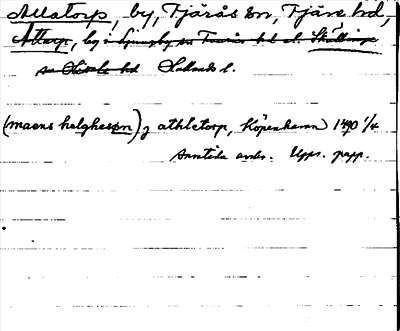 Allatorp, by, Tjärås sn, Fjäre hd,
Attarp, by i Ljungby sn
sn hd Hallands l.
(maens helghesøn) j athletorp, Köpenhamn 1490 1/4
Samtida avskr. Upps. papp.